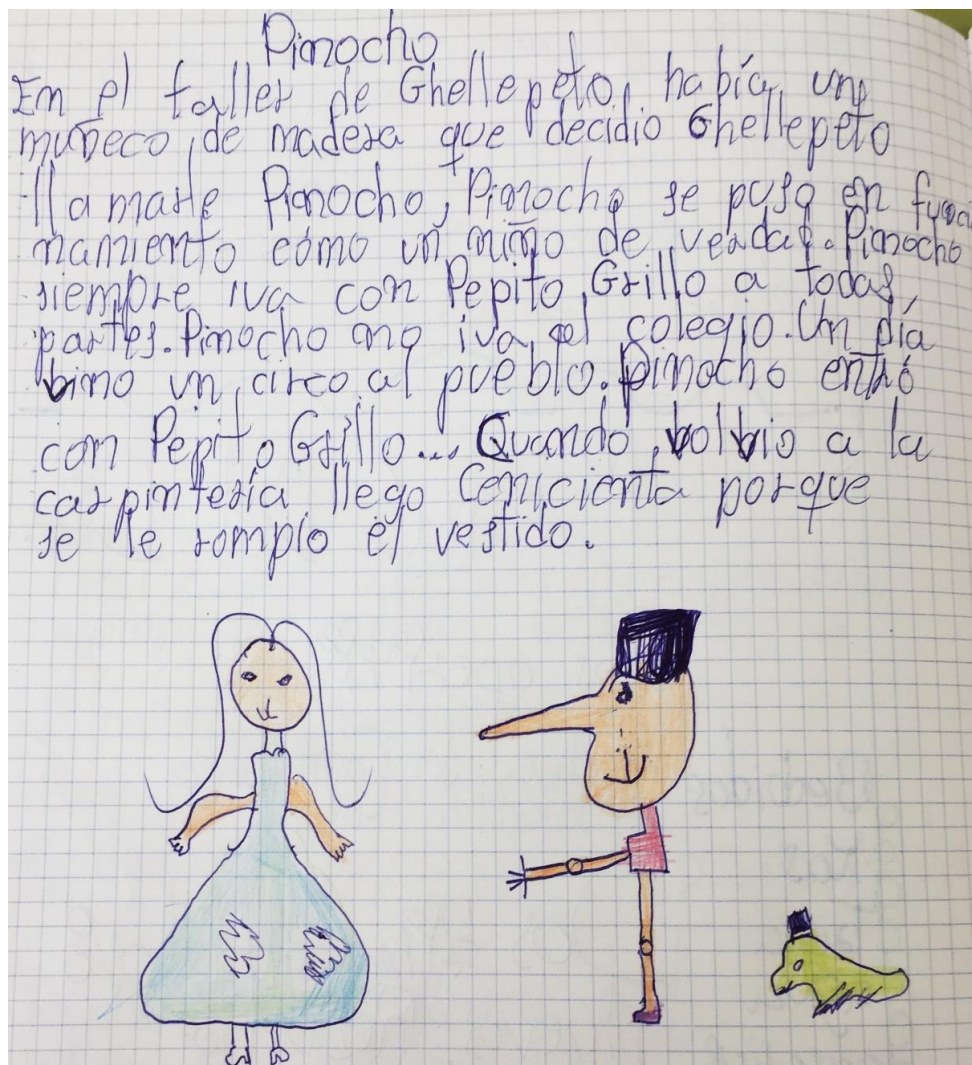 Pinocho
En el taller de Ghellepeto, había un
muñeco, de madera que decidio Ghellepeto
llamarle Pinocho, Pinocho se puso en funcio
namiento cómo un niño de verdad. Pinocho
siempre iva con Pepito Grillo a todas,
partes. Pinocho no iva al colegio. Un día
vino un circo al pueblo. Pinocho entró
con Pepito Grillo... Quando volvio a la
carpintería llego Cenicienta porque
se le rompio el vestido.